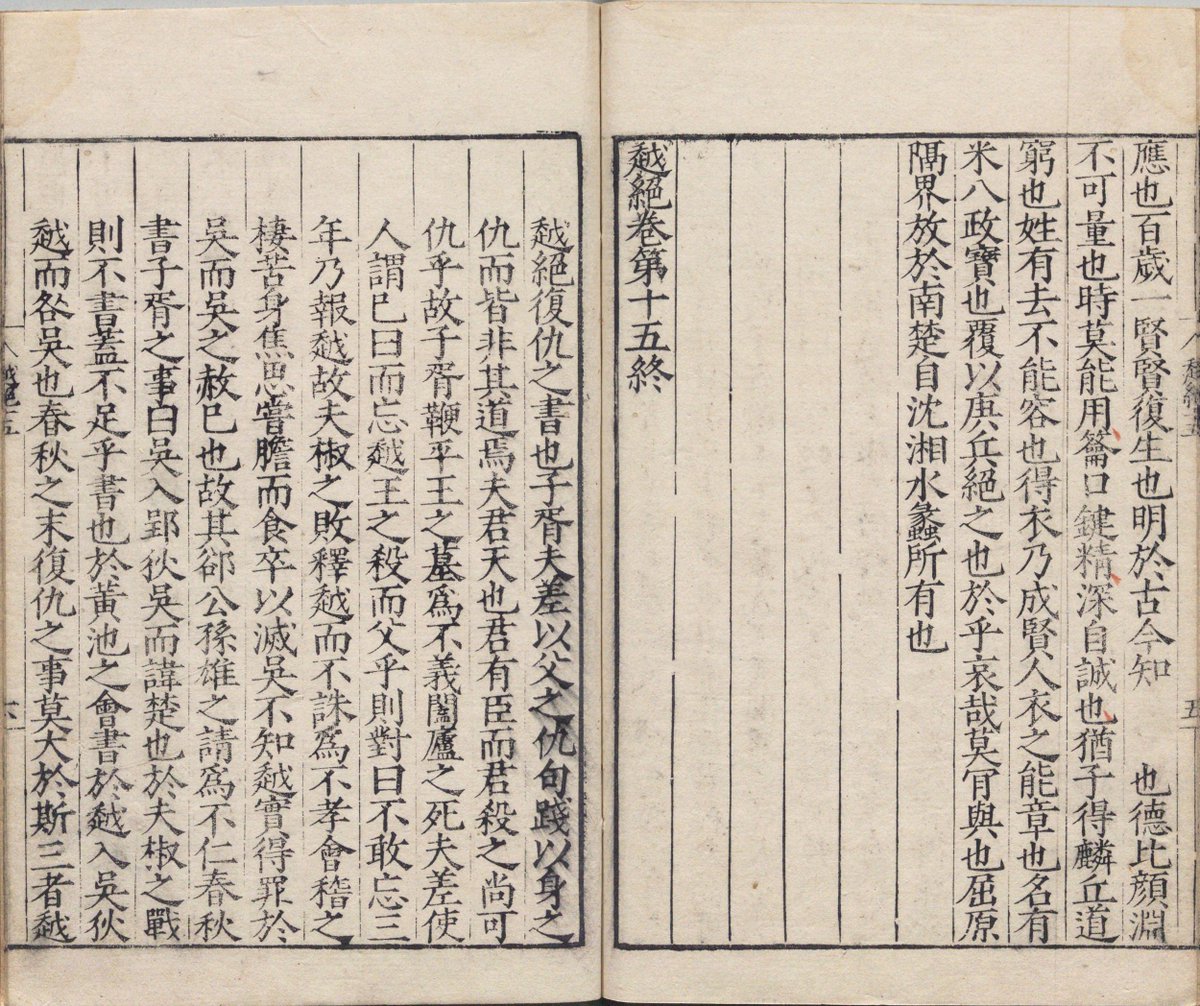 應也百歲一賢賢復生也明於古今知　　也德比顏淵
不可量也時莫能用籥口鍵精深自誠也猶子得麟丘道
窮也姓有去不能容也得衣乃成賢人衣之能章也名有
米八政寶也覆以庚兵絕之也於乎哀哉莫肎與也屈原
隔界放於南楚自沈湘水蠡所有也
越絕卷第十五終
越絕復仇之書也子胥夫差以父之仇句踐以身之
仇而皆非其道焉夫君天也君有臣而君殺之尚可
仇乎故子胥鞭平王之墓爲不義闔廬之死夫差使
人謂已曰而忘越王之殺而父乎則對曰不敢忘三
年乃報越故夫椒之敗釋越而不誅爲不孝會稽之
棲苦身焦思嘗膽而食卒以滅吳不知越實得罪於
吳而吳之赦已也故其郤公孫雄之請爲不仁春秋
書子胥之事曰吳入郢狄吳而諱楚也於夫椒之戰
則不書蓋不足乎書也於黃池之會書於越入吳狄
越而咎吳也春秋之末復仇之事莫大於斯三者越